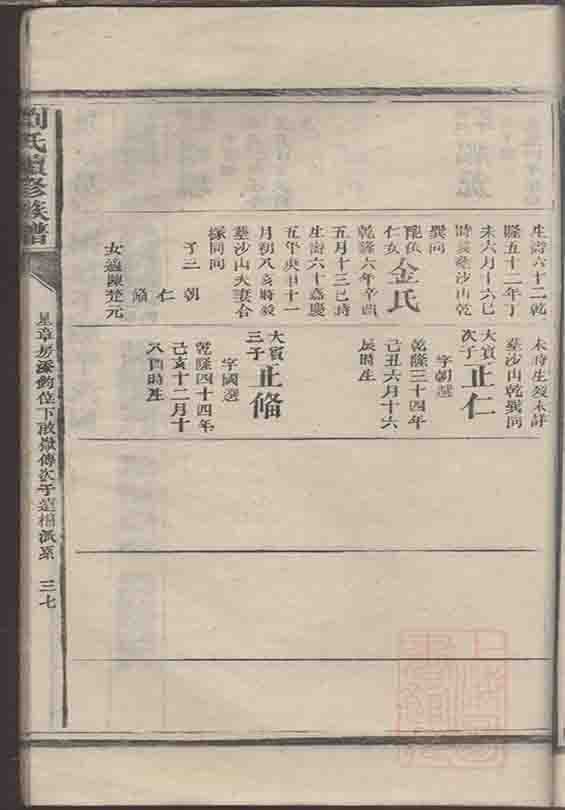 生壽六十二乾
隆五十二年丁
未六月十六巳
時葬墓沙山乾
巽向
配侯
仁女
金氏
乾隆六年辛酉
五月十三巳時
生壽六十嘉慶
五年庚申十一
月初八亥時歿
墓沙山夫妻合
塚同向
子三 朝
仁
脩
女適陳楚元
未時生歿未詳
墓沙山乾巽向
大賓
次子
正仁
字朝選
乾隆三十四年
己丑六月十六
辰時生
大賓
三子
正脩
字國選
乾隆四十四年
己亥十二月十
八酉時生
劉氏續修族譜
星章房
位下啟
傳次子
派系 三七